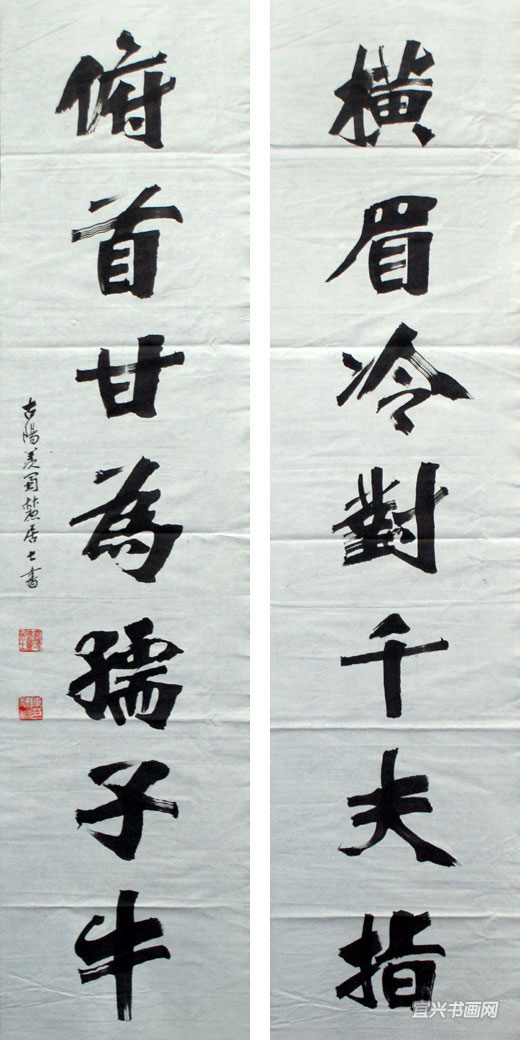 橫眉冷對千夫指
俯首甘為孺子牛
古陽羨蜀楚居士書
宜兴书画网